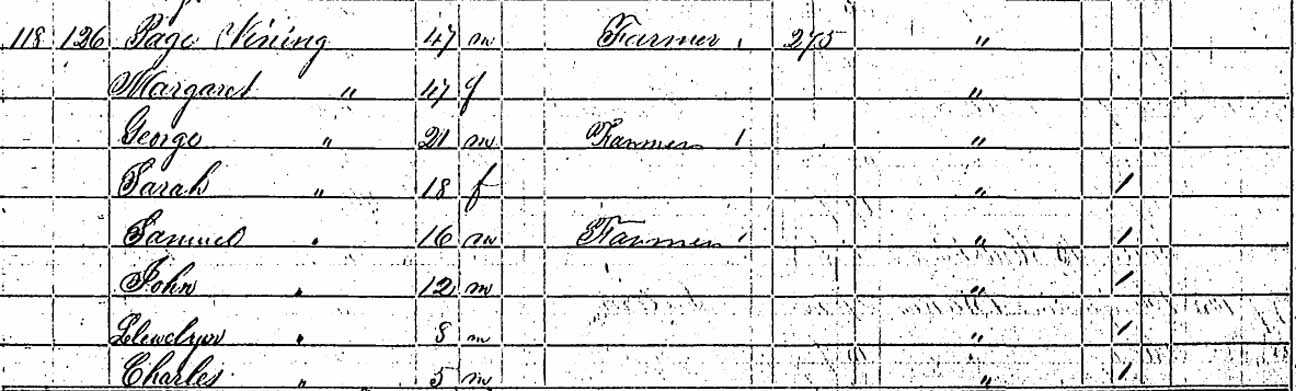 118 126 Page Vining 47 m Farmer 1 275 "
Margaret " 47 f "
George " 21 m Farmer 1 "
Sarah " 18 f " 1
Samuel " 16 m Farmer 1 " 1
John " 12 m " 1
Llewelyn " 8 m " 1
Charles " 5 m " 1